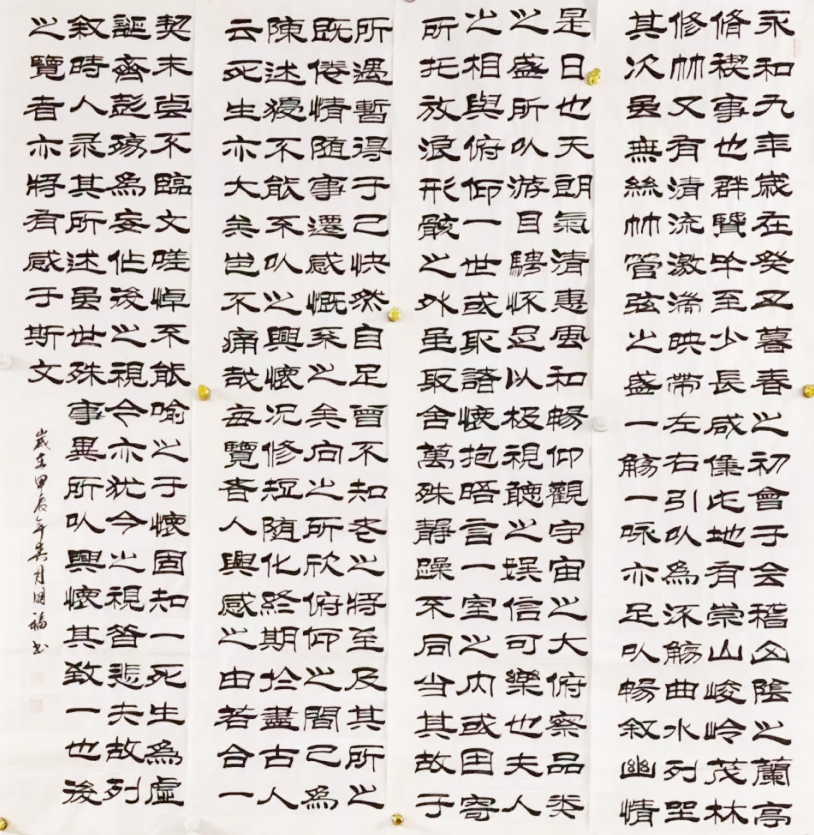 永和九年歲在癸丑暮春之初會于会稽山陰之蘭亭
脩禊事也群賢畢至少長咸集此地有崇山峻岭茂林
修竹又有清流激湍映帶左右引以為流觴曲水列坐
其次虽無絲竹管弦之盛一觴一咏亦足以暢叙幽情
是日也天朗氣清惠風和暢仰觀宇宙之大俯察品类
之盛所以游目騁怀足以极視聽之娱信可樂也夫人
之相與俯仰一世或取諸懷抱晤言一室之内或因寄
所托放浪形骸之外虽取舍萬殊靜躁不同当其故于
所遇暫得于己快然自足曾不知老之将至及其所之
既倦情随事遷感慨系之矣向之所欣俯仰之間已為
陳述猶不能不以之興懷况修短随化終期於盡古人
云死生亦大矣岂不痛哉每覽昔人興感之由若合一
契未尝不臨文嗟悼不能喻之于懷固知一死生為虚
誕齊彭殤為妄作後之視今亦犹今之視昔悲夫故列
叙時人录其所述虽世殊事異所以興懷其致一也後
之覽者亦将有感于斯文
歲在甲辰年月国福书